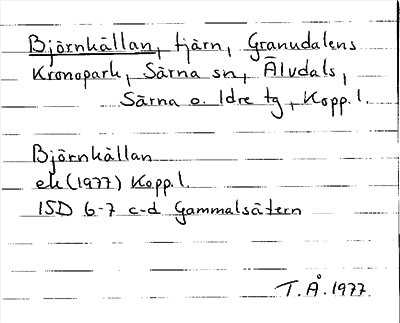 Björnkällan, tjärn, Granudalens
Kronopark, Särna sn, Älvdals,
Särna o. Idre tg, Kopp. l.
Björnkällan
ek (1977) Kopp. l.
15D 6-7 c-d Gammalsätern
T. Å. 1977.